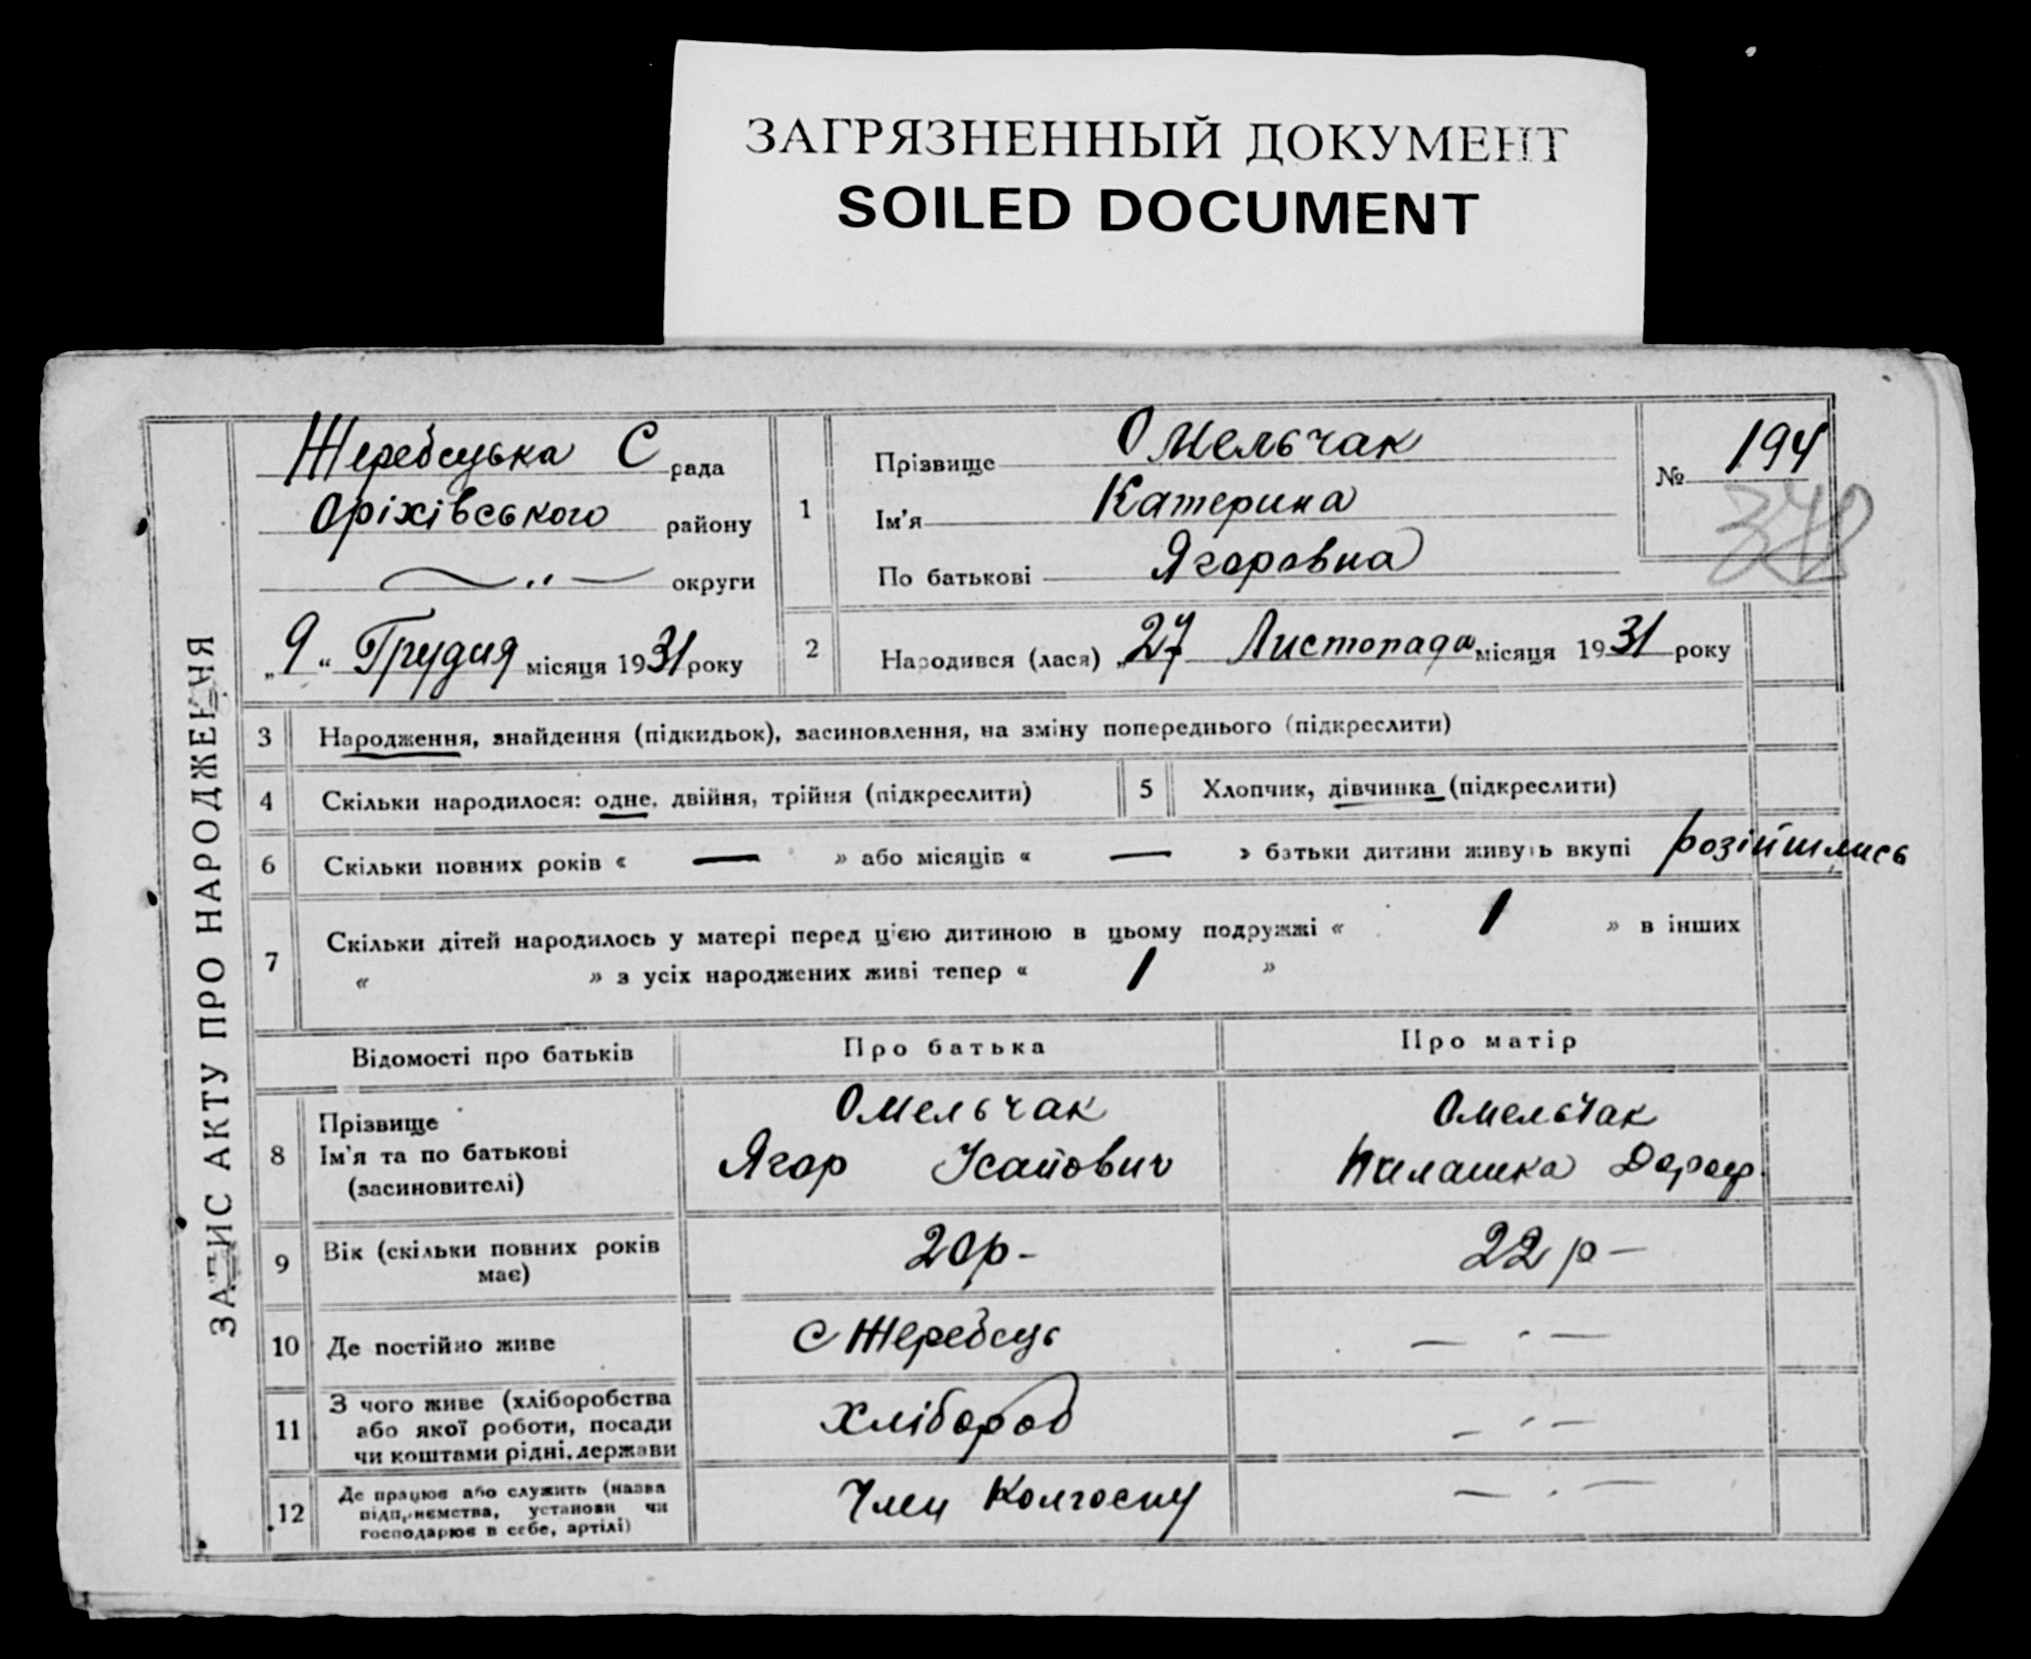 ЗАГРЯЗНЕННЫЙ ДОКУМЕНТ
SOILED DOCUMENT
ЗАПИС АКТУ ПРО НАРОДЖЕННЯ
Жеребецька С рада
Оріхівського району
—〃— округи
„9“ Грудня місяця 1931 року
1
Прізвище Омельчак
Ім'я Катерина
По батькові Ягоровна
№ 194
378
2 Народився (лася) „27 Листопада місяця 1931 року
3 Народження, знайдення (підкидьок), засиновлення, на зміну попереднього (підкреслити)
4 Скільки народилося: одне, двійня, трійня (підкреслити)
5 Хлопчик, дівчинка (підкреслити)
6 Скільки повних років « — » або місяців « — » батьки дитини живуть вкупі розійшлись
7 Скільки дітей народилось у матері перед цією дитиною в цьому подружжі « 1 » в інших
« » з усіх народжених живі тепер « 1 »
Відомості про батьків Про батька Про матір
8 Прізвище
Ім'я та по батькові
(засиновителі)
Омельчак
Ягор Ісайович
Омельчак
Килашка Дороф.
9 Вік (скільки повних років
має)
20р-
22 р-
10 Де постійно живе
С Жеребець
— 〃 —
11 З чого живе (хліборобства
або якої роботи, посади
чи коштами рідні, держави
Хлібороб
— 〃 —
12 Де працює або служить (назва
підприємства, установи чи
господарює в себе, артілі)
Член Колгоспу
— 〃 —